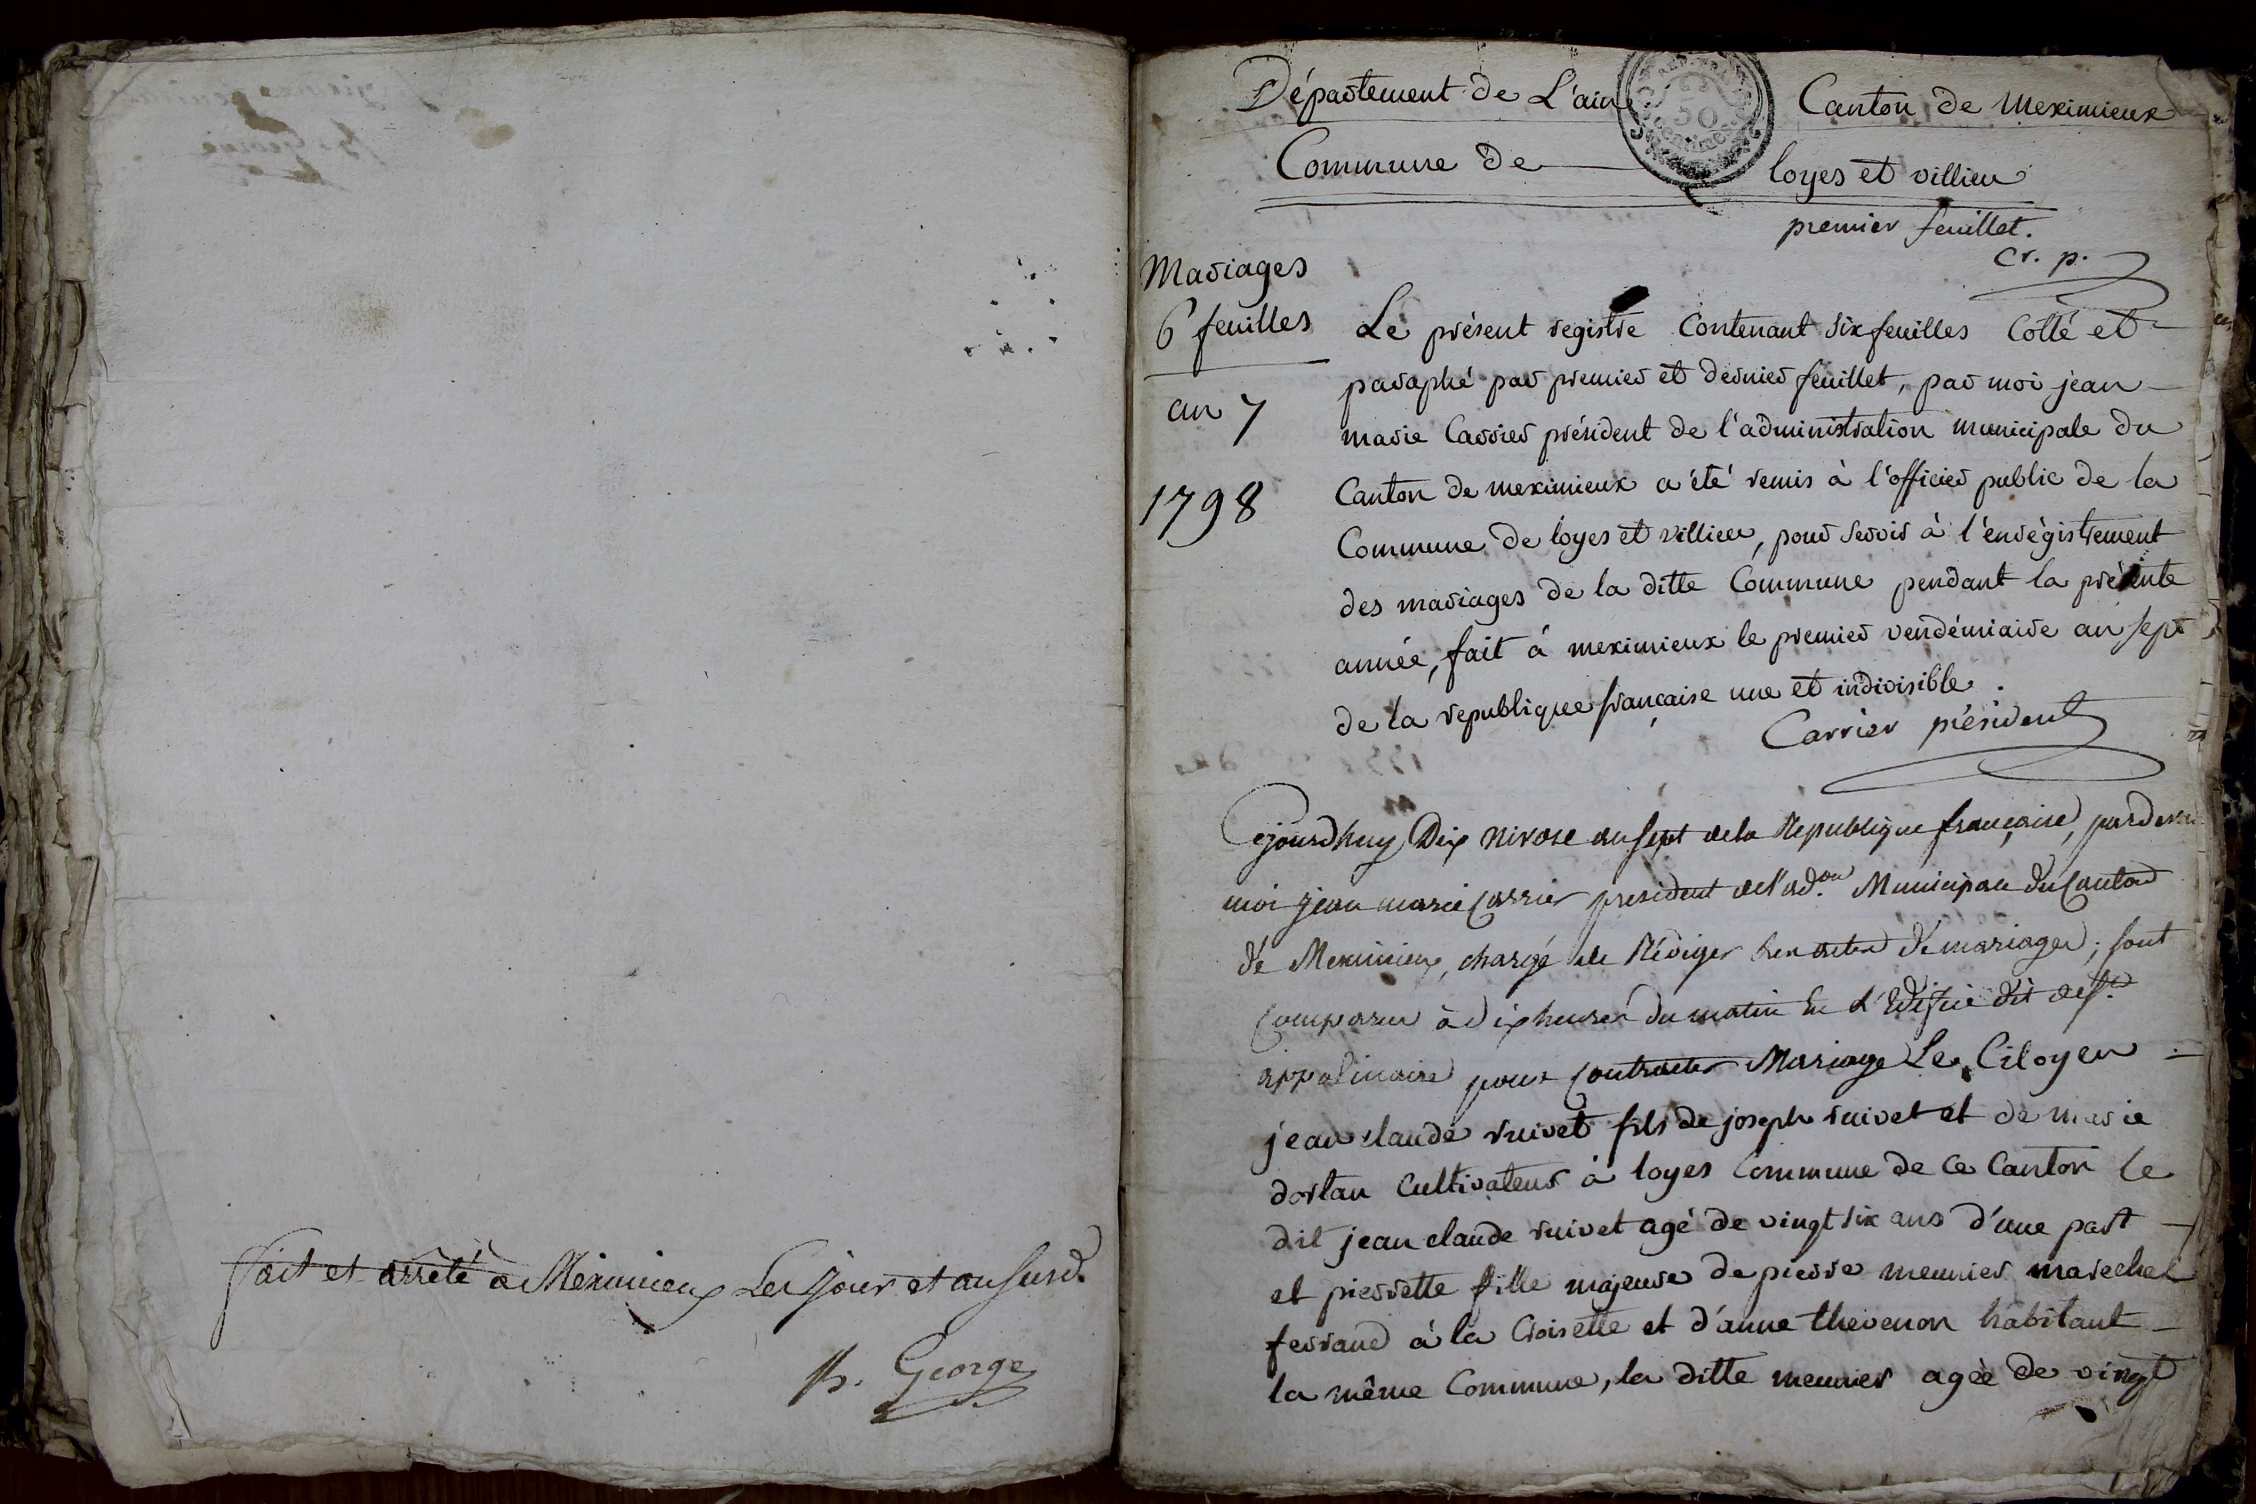 fait et arrêté a Meximieux Les jour et an susd.
George
Département de L'ain
Canton de meximieux
50
Commune de
loyes et villieu
premier feuillet.
cr. p.
Mariages
6 feuilles
an 7
1798
Le présent registre Contenant six feuilles Cotté et
paraphé par premier et dernier feuillet, par moi jean
marie Carrier président de l'administration municipale du
Canton de meximieux a été remis à l'officier public de la
Commune de loyes et villieu, pour servir à l'enrégistrement
des mariages de la ditte Commune pendant la présente
année, fait à meximieux le premier vendémiaire an sept
de la republique française une et indivisible.
Carrier président
Cejourdhuy Dix nivose an sept de la Republique française, pardevant
moi jean marie Carrier president de l'ad.on Municipale du Canton
de Meximieux, chargé de Rédiger les actes de mariages; sont
Comparus à dix heures du matin en L'Edifice dit de St.
appolinaire pour Contracter Mariage Le Citoyen
jean claude ruivet fils de joseph ruivet et de marie
dortan Cultivateur à loyes Commune de ce Canton le
dit jean claude ruivet agé de vingt six ans d'une part
et pierrette fille majeure de pierre meunier marechal
ferrand à la Croisette et d'anne thevenon habitant
la même Commune, la ditte meunier agée de vingt